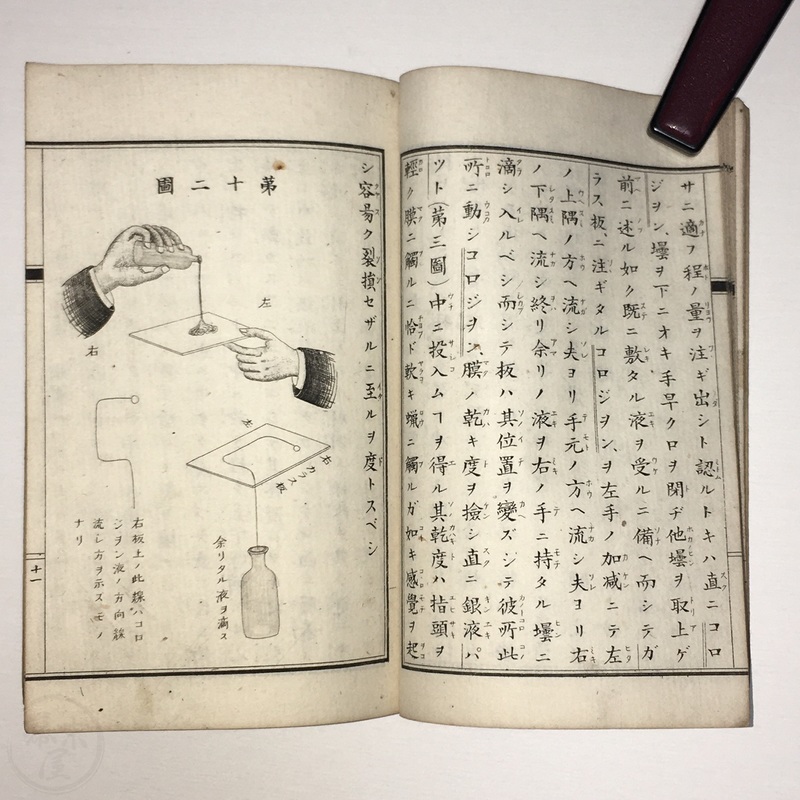 サニ適フ程ノ量ヲ注ギ出シト認ルトキハ直ニコロ
ジヲン、壜ヲ下ニオキ手早ク口ヲ閉ヂ他壜ヲ取上ゲ
前ニ述ル如ク既ニ敷タル液ヲ受ルニ備ヘ而シテガ
ラス板、ニ注ギタルコロジヲン、ヲ左手ノ加减ニテ左
ノ上隅ノ方ヘ流シ夫ヨリ手元ノ方ヘ流シ夫ヨリ右
ノ下隅ヘ流シ終リ余リノ液ヲ右ノ手ニ持タル壜ニ
滴シ入ルベシ而シテ板ハ其位置ヲ變ズシテ彼所此
所ニ動シコロジヲン、膜ノ乾キ度ヲ撿シ直ニ銀液バ
ツト(第三圖)中ニ投入ムヿヲ得ル其乾度ハ指頭ヲ
輕ク膜ニ觸ルニ恰ド軟キ蝋ニ觸ルガ如キ感覺ヲ起
シ容昜ク裂損セザルニ至ルヲ度トスベシ
第十二圖
左
右
右
ガラス板
左
余リタル液ヲ滴ス
右板上ノ此線ハコロ
ジヲン液ノ方向線
流シ方ヲ示スモノ
ナリ
十一